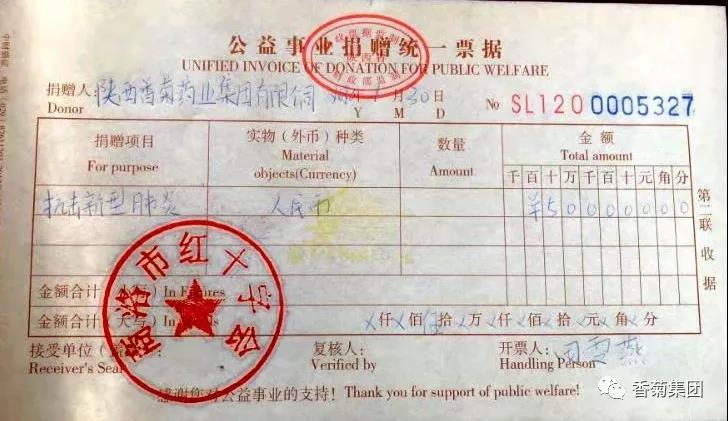 公益事业捐赠统一票据
UNIFIED INVOICE OF DONATION FOR PUBLIC WELFARE
捐赠人: 陕西香菊药业集团有限公司 月 30 日 No SL120 0005327
Donor Y M D
捐赠项目 实物（外币）种类 数量 金额
For purpose Material objects(Currency) Amount Total amount
千 百 十 万 千 百 十 元 角 分
抗击新型肺炎 人民币 ¥50000000
金额合计（小写）In Figures
金额合计（大写）In Words 仟 佰 伍拾 万 仟 佰 拾 元 角 分
接受单位（ 复核人: 开票人:
Receiver's Seal Verified by Handling Person
感谢您对公益事业的支持！Thank you for support of public welfare!
第二联 收据
商洛市红十字会
香菊集团